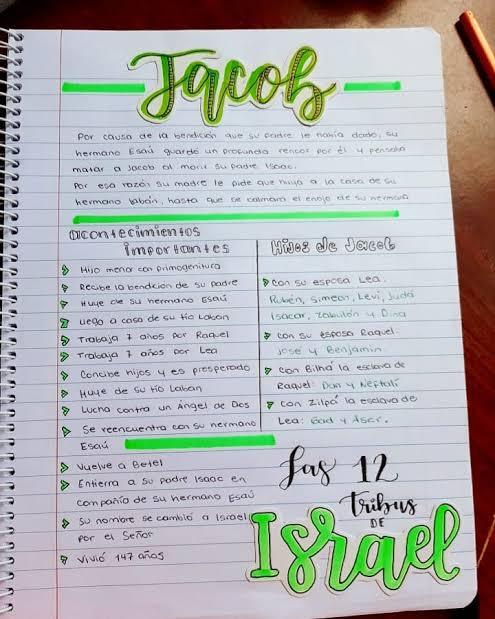 Jacob
Por causa de la bendición que su padre le había dado, su
hermano Esaú guardó un profundo rencor por él y pensaba
matar a Jacob al morir su padre Isaac.
Por esa razón su madre le pide que huya a la casa de su
hermano labán, hasta que se calmara el enojo de su hermano
acontecimientos
importantes
Hijo menor con primogenitura
Recibe la bendición de su padre
Huye de su hermano Esaú
Llega a casa de su tío Labán
Trabaja 7 años por Raquel
Trabaja 7 años por Lea
Concibe hijos y es prosperado
Huye de su tío Laban
Lucha contra un Ángel de Dos
Se reencuentra con su hermano
Esaú
Vuelve a Betel
Entierra a su padre Isaac en
compañía de su hermano Esaú
Su nombre se cambió a Israel
por el Señor
Vivió 147 años
Hijos de Jacob
Con su esposa Lea.
Rubén, Simeon, Levi, Judá
Isacar, Zabulón y Dina
Con su esposa Raquel.
José y Benjamin
Con Bilha la esclava de
Raquel: Dan y Neftalí
Con Zilpá la esclava de
Lea: Gad y Aser.
Las 12
tribus
DE
Israel